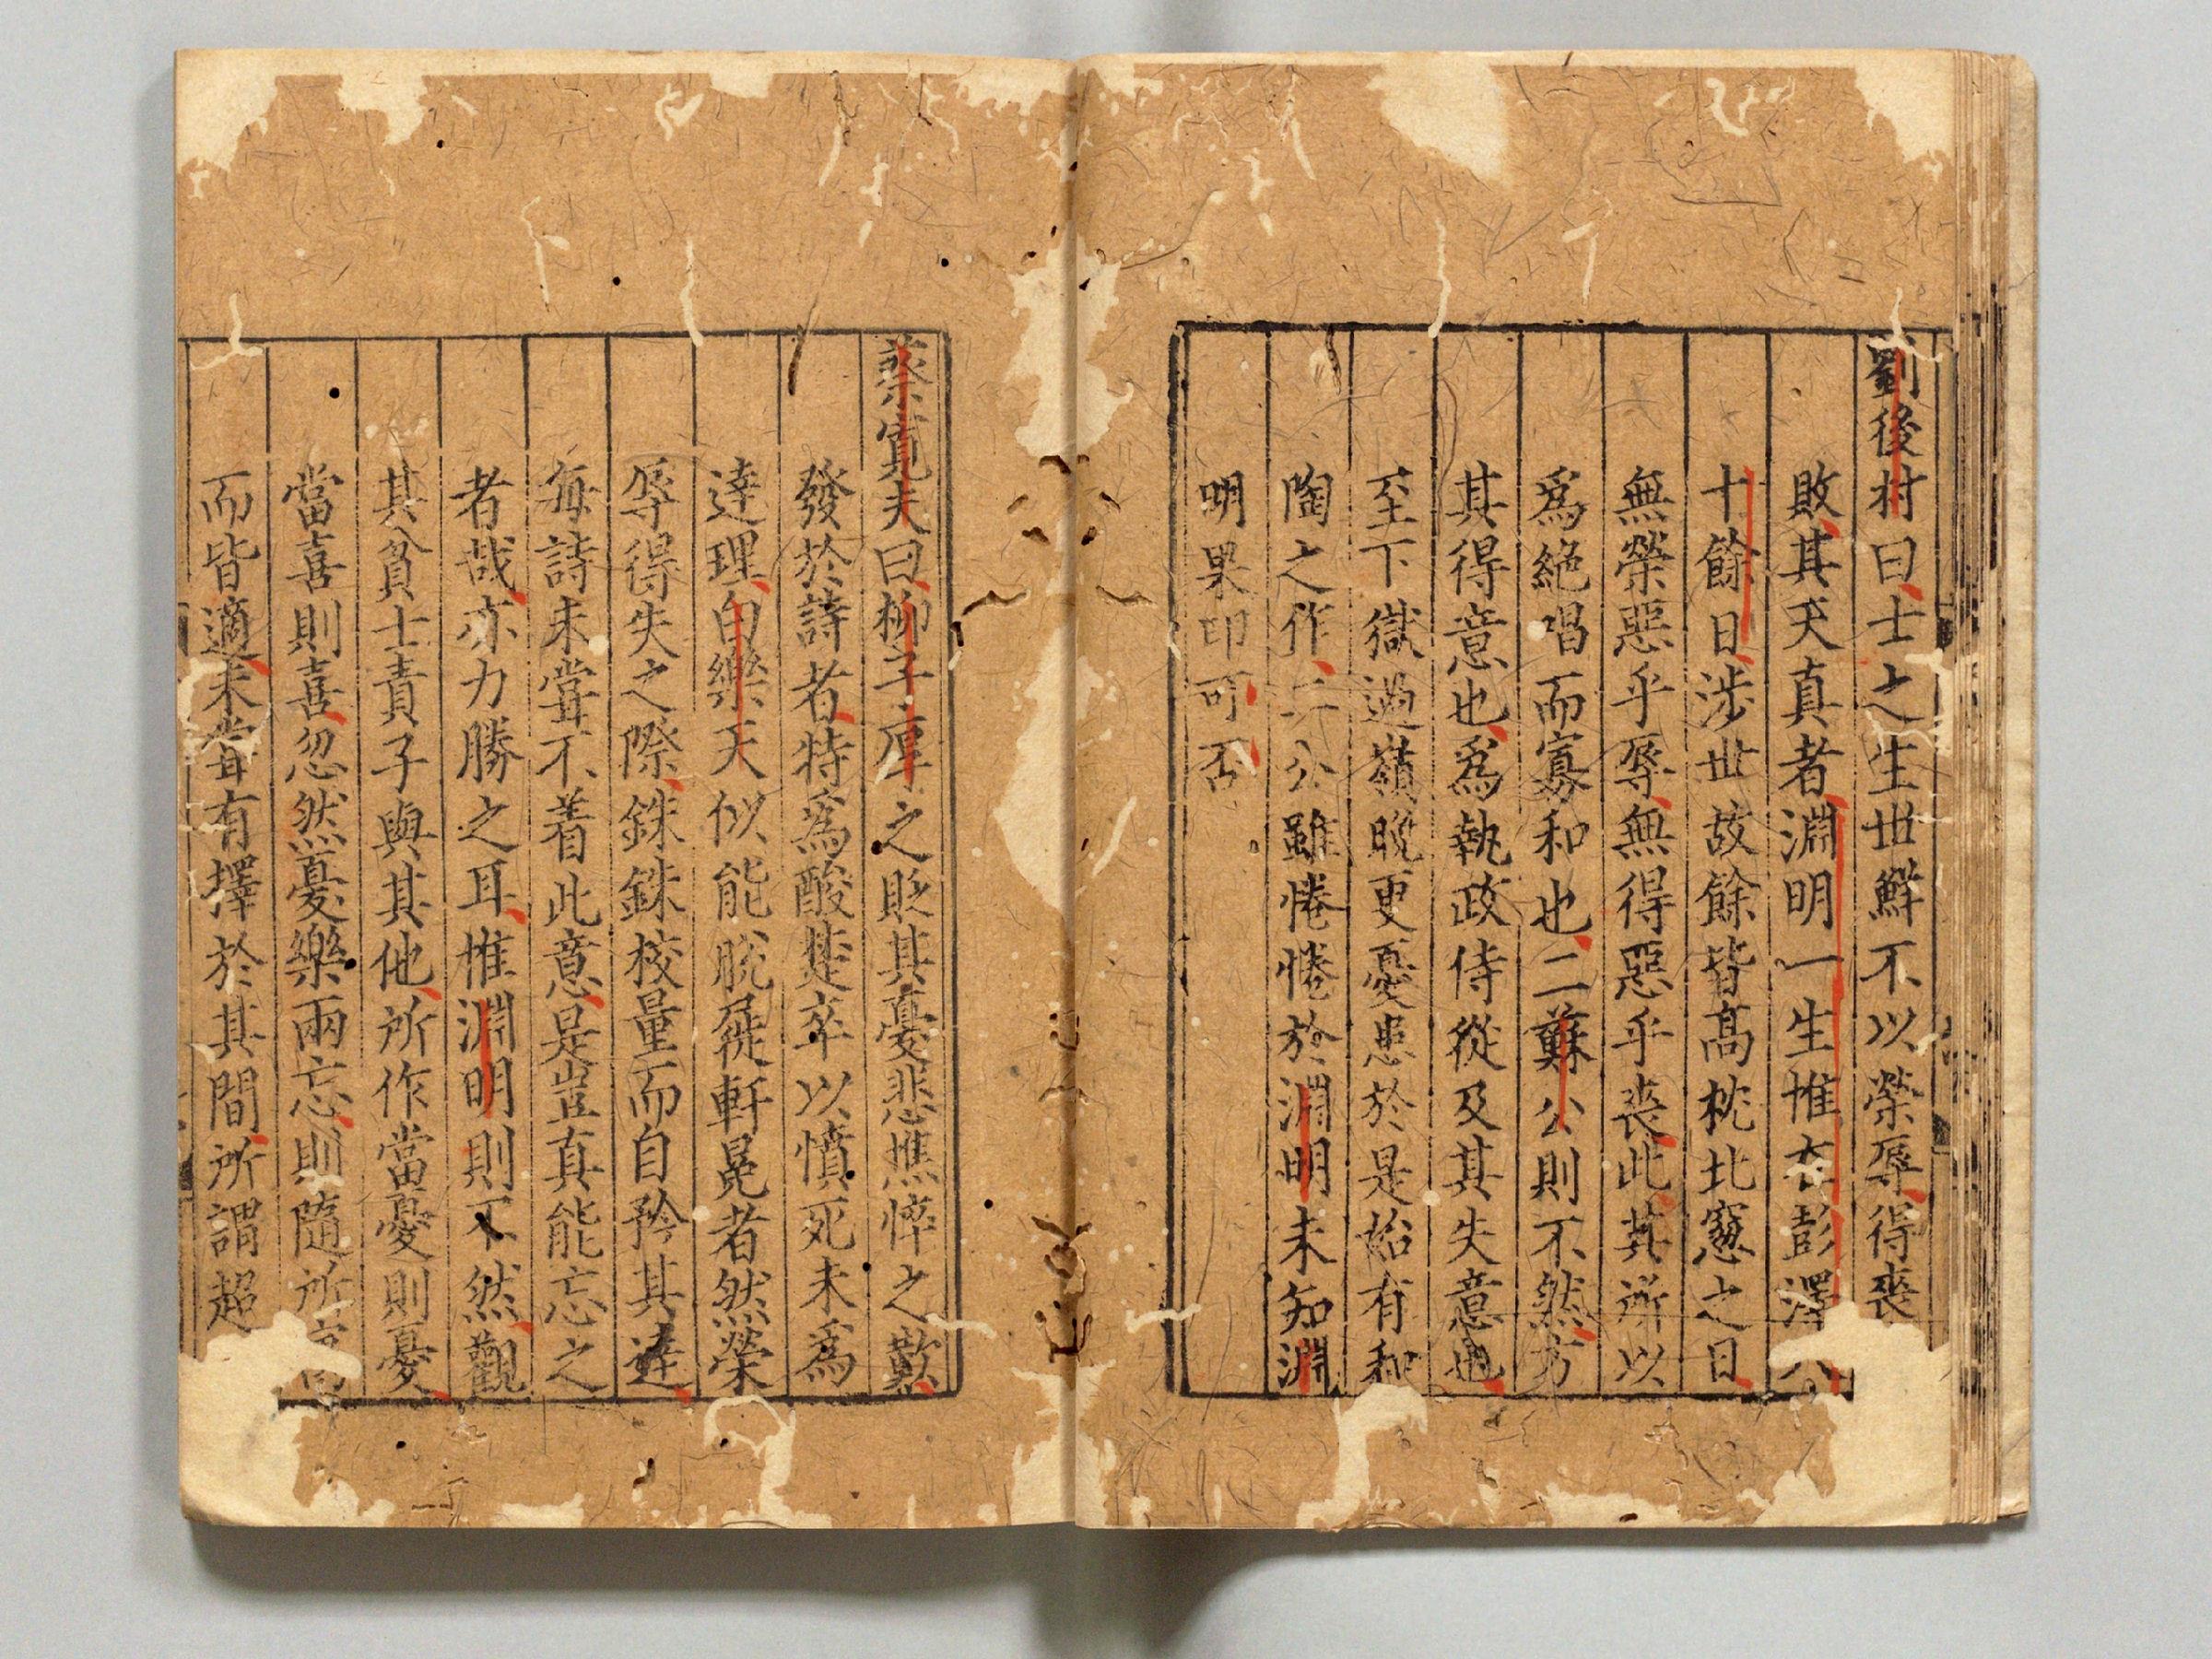 劉後村曰士之生世鮮不以榮辱得喪
敗其天真者淵明一生惟在彭澤八
十餘日涉世故餘皆高枕北窓之日
無榮惡乎辱無得惡乎喪此其所以
爲絶唱而寡和也二蘇公則不然方
其得意也爲執政侍從及其失意也
至下獄過嶺晚更憂患於是始有和
陶之作二公雖惓惓於淵明未知淵
明果印可否
蔡寬夫曰柳子厚之貶其憂悲憔悴之歎
發於詩者特爲酸楚卒以憤死未爲
達理白樂天似能脫屣軒冕者然榮
辱得失之際銖銖校量而自矜其達
每詩未甞不着此意是豈真能忘之
者哉亦力勝之耳惟淵明則不然觀
其貧士責子與其他所作當憂則憂
當喜則喜忽然憂樂兩忘則隨所寓
而皆適未甞有擇於其間所謂超